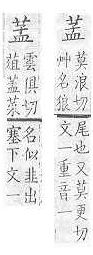 莫浪切
艸名狼
尾也又莫更切
文一重音一
雲俱切
名似韭出
塞下文一